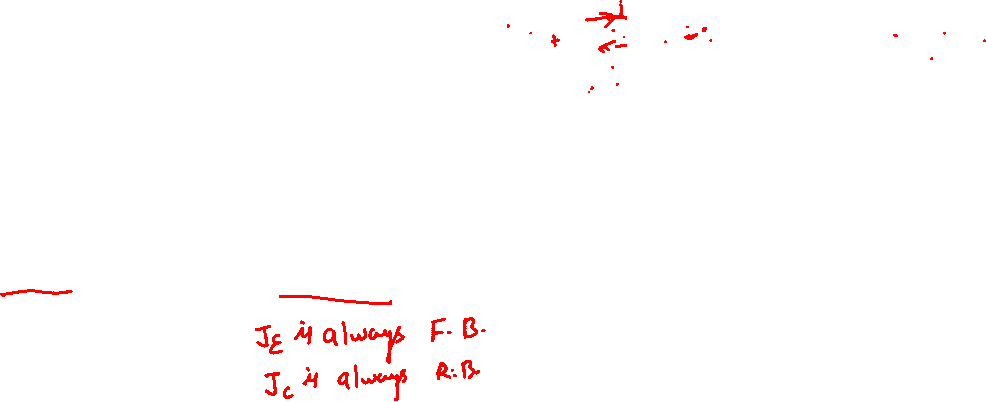 J_E is always F.B.
J_C is always R.B